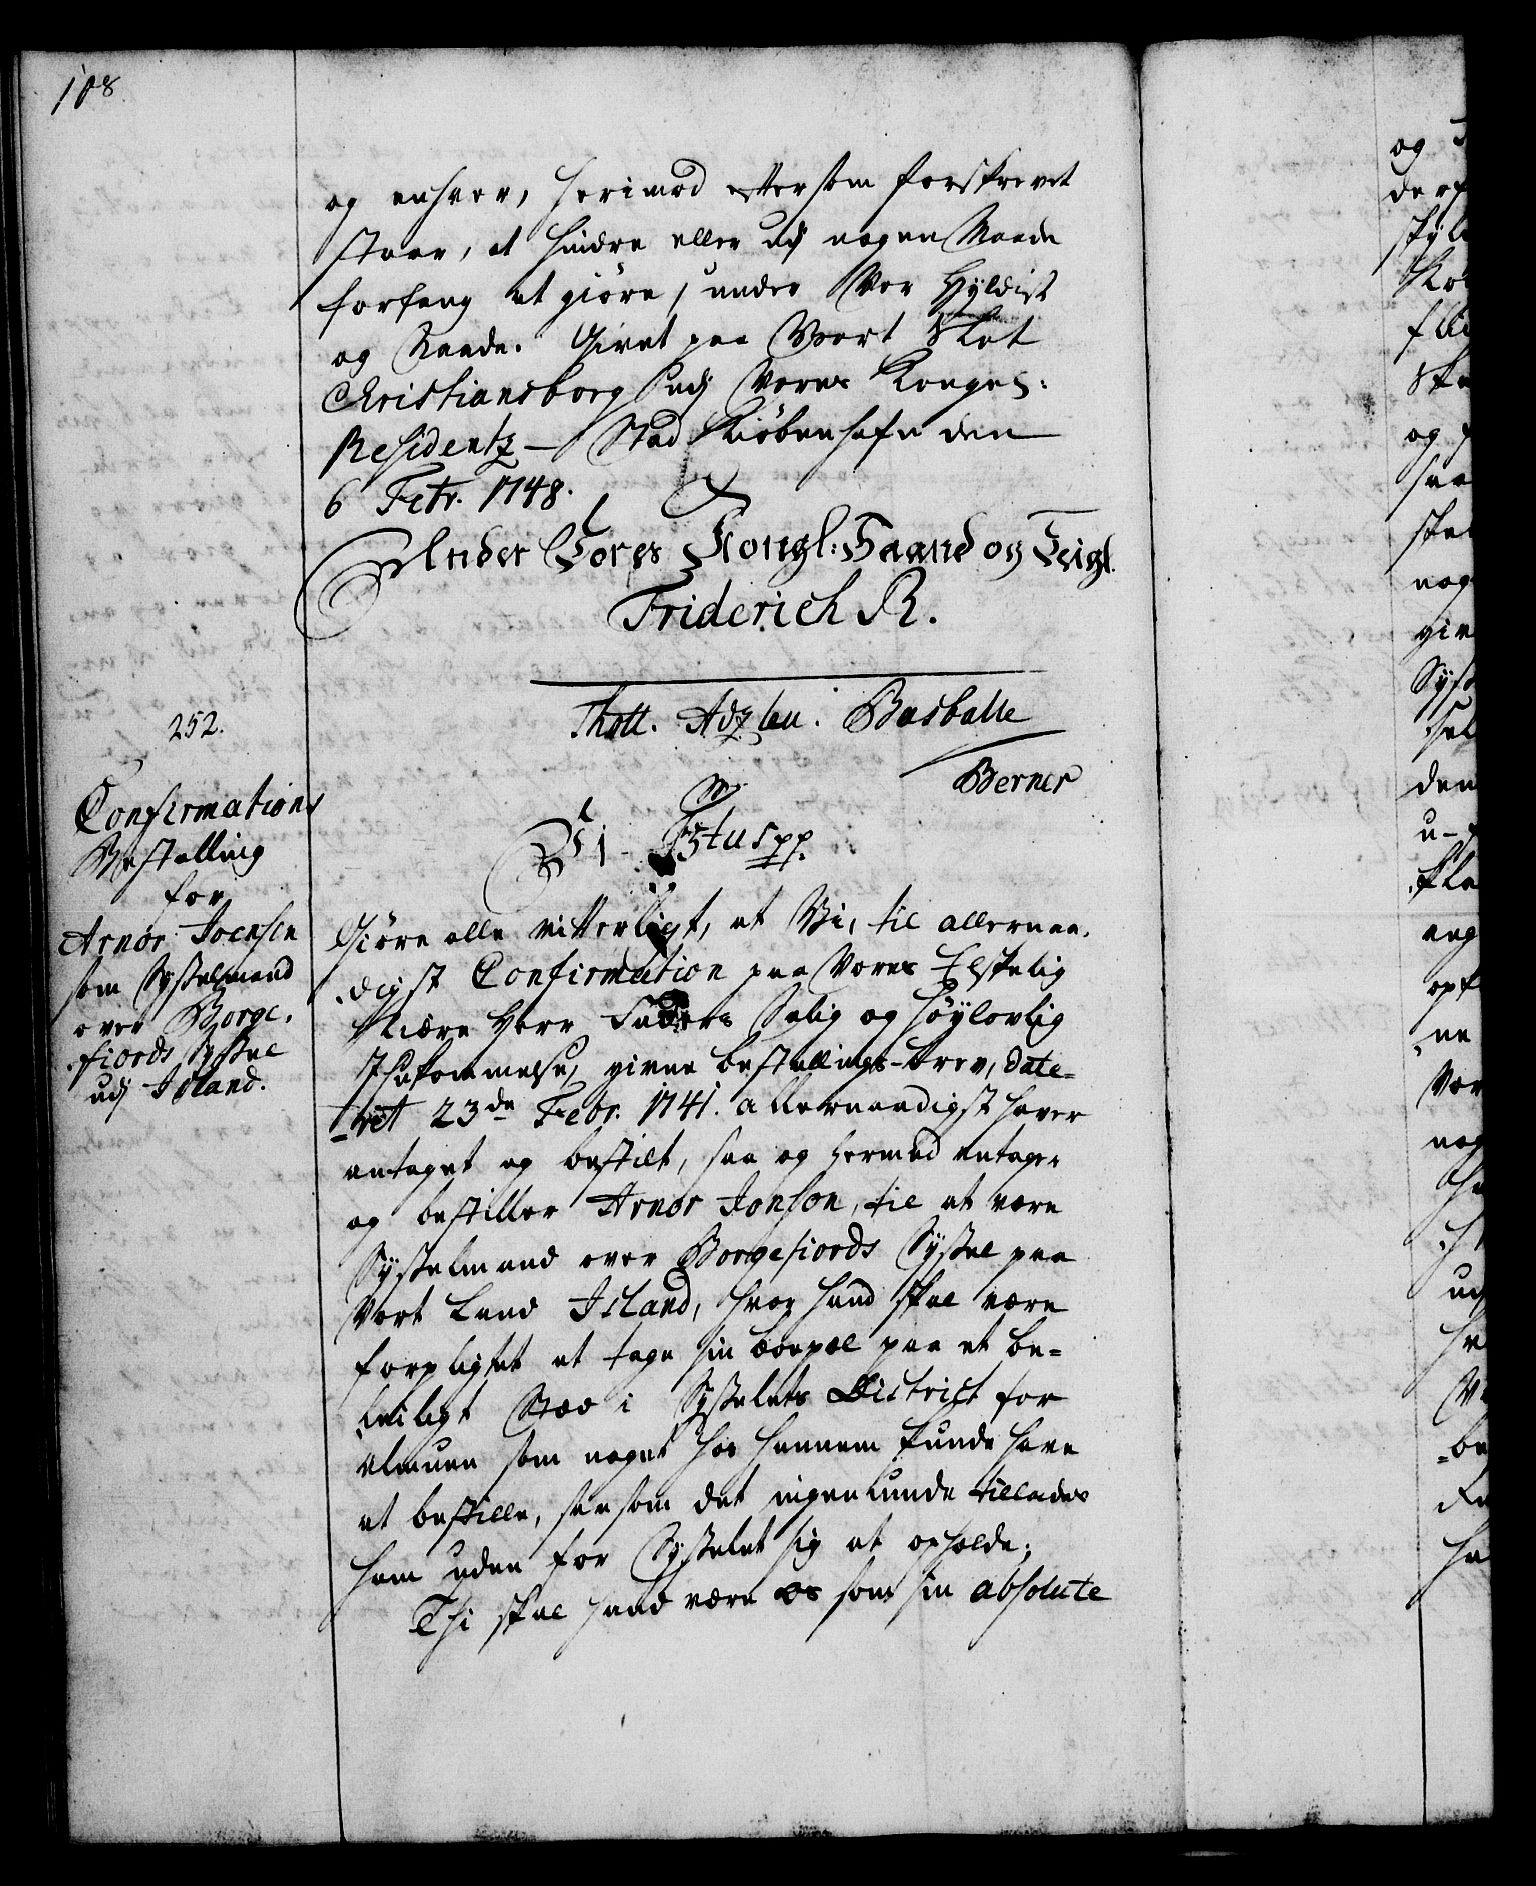 108
og enhver, herimod eftersom forskrevet
staar, at hindre eller udj nogen Maade
forfang at giøre, under Vor Hyldist
og Naade. Givet paa Vort Slot
Christiansborg udj Vores Kongel:
Residentz - Stad Kiøbenhafn den
6 Febr. 1748.
Under Vores Kongl: Haand og Seigl.
Friderich R.
Thott. Adzleu. Basballe
Berner
252.
Confirmations
Bestalling
for
Arnór Joensen
som Sysselmand
over Borge-
fiords Syssel
udj Island.
Vi Fr. 5tus pp.
Giøre alle vitterligt, at Vi, til allernaa-
digst Confirmation paa Vores Elskelig
Kiære Herr Faders Salig og Høylovlig
Ihukommelse, givne bestallings-brev, date-
ret 23de Febr. 1741. allernaadigst haver
antaget og bestilt, saa og hermed antager
og bestiller Arnor Jonson, til at være
Sysselmand over Borgefiords Syssel paa
Vort Land Island, hvor hand skal være
forpligtet at tage sin boepæl paa et be-
leiligt Stæd i Sysselets District for
Almuen som noget hos hannem kunde have
at bestille, saasom det ingenlunde tillades
ham uden for Sysselet sig at opholde;
Thi skal hand være os som sin absolute